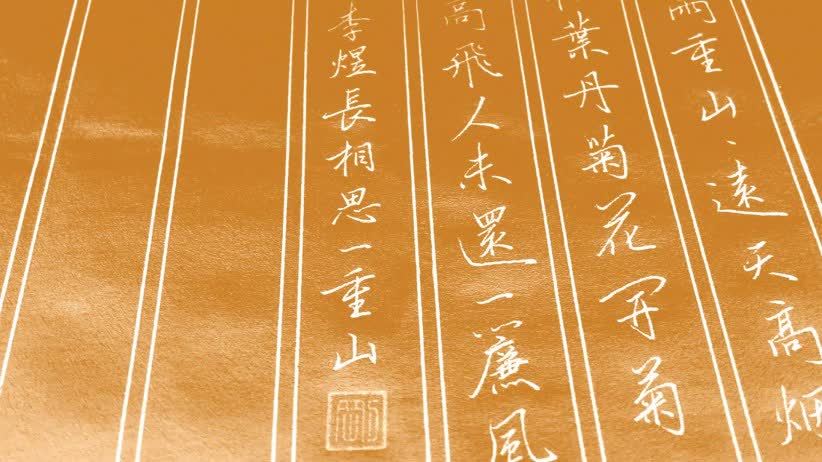 兩重山、遠天高烟
葉丹菊花開菊
高飛人未還一簾風
李煜長相思一重山